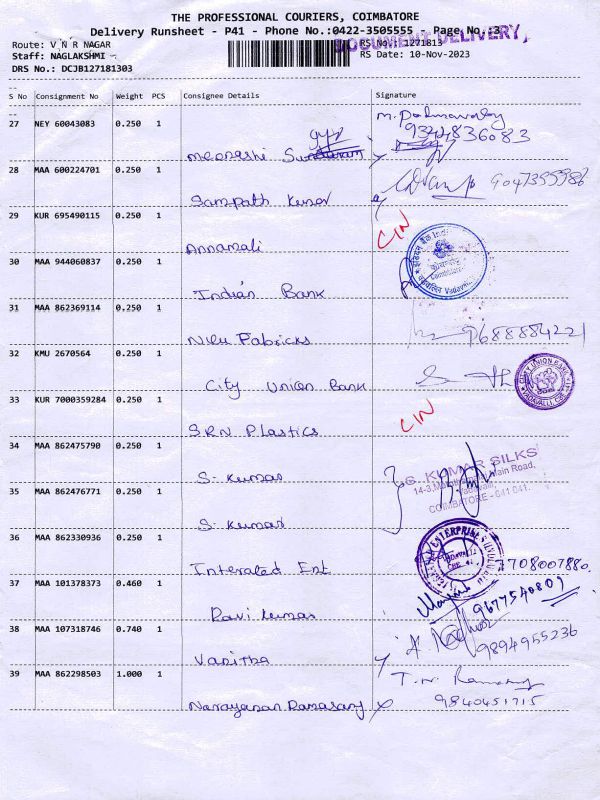 THE PROFESSIONAL COURIERS, COIMBATORE
Delivery Runsheet - P41 - Phone No.:0422-3505555 - Page No.:3
DOCUMENT DELIVERY,
Route: V N R NAGAR
RS No.: 1271813
Staff: NAGLAKSHMI -
RS Date: 10-Nov-2023
DRS No.: DCJB127181303
S No Consignment No Weight PCS Consignee Details Signature
27 NEY 60043083 0.250 1
M. Padmavathy
9344836083
Meenashi Sundaram
28 MAA 600224701 0.250 1
Sampath Kumar
9047355986
29 KUR 695490115 0.250 1
Annamali
CIN
30 MAA 944060837 0.250 1
Indian Bank
31 MAA 862369114 0.250 1
Nilu Fabricks
9688884221
32 KMU 2670564 0.250 1
City Union Bank
CITY UNION BANK
33 KUR 7000359284 0.250 1
SRN Plastics
CIN
34 MAA 862475790 0.250 1
S. Kumar
G. KUMAR SILKS
Main Road,
COIMBATORE - 641 041.
35 MAA 862476771 0.250 1
S. Kumar
36 MAA 862330936 0.250 1
Interated Ent
ENTERPRISES
9708007880
37 MAA 101378373 0.460 1
Ravi Kumar
9677540809
38 MAA 107318746 0.740 1
Vanitha
9894955236
39 MAA 862298503 1.000 1
Narayanan Ramasamy
9840451715